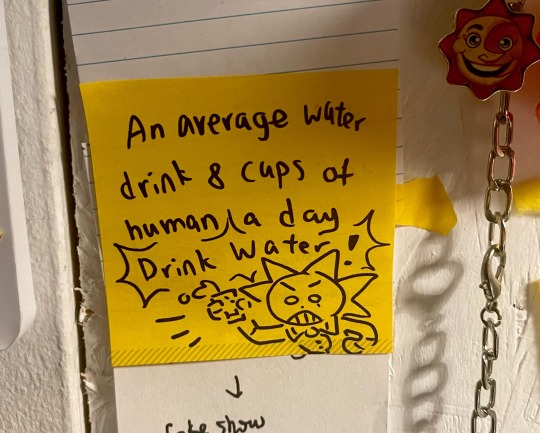 An average water
drink 8 cups of
human a day
Drink Water!
↓
show